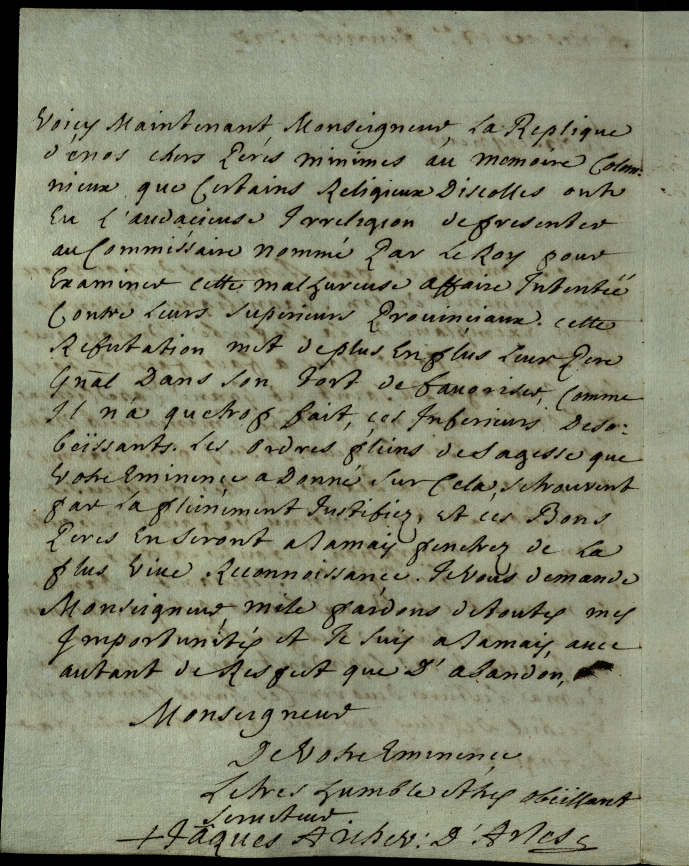 Voicy Maintenant, Monseigneur, La Replique
de nos chers Peres minimes au memoire Calom-
nieux que Certains Religieux Discolles ont
Eu L'audacieuse Irreligion de presenter
au Commissaire nommé Par Le Roy pour
Examiner cette malhureuse affaire Intentéé
Contre Leurs Superieurs Provinciaux. cette
Refutation met de plus En plus Leur Pere
Gñal Dans son tort de favoriser, Comme
Il n'a que trop fait, ces Inferieurs Deso-
beïssants. Les ordres pleins de sagesse que
Votre Eminence a Donné sur Cela, se trouvent
par La pleinement Justifiez, et ces Bons
Peres En seront a Jamais penetrez de La
plus Vive Reconnoissance. Je vous demande
Monseigneur, mile pardons de toutes mes
Importunités et Je suis a Jamais, avec
autant de Respect que D'abandon,
Monseigneur
De Votre Eminence
Le tres humble et tres obeïssant
serviteur
+ Jaques Archev: D'Arles